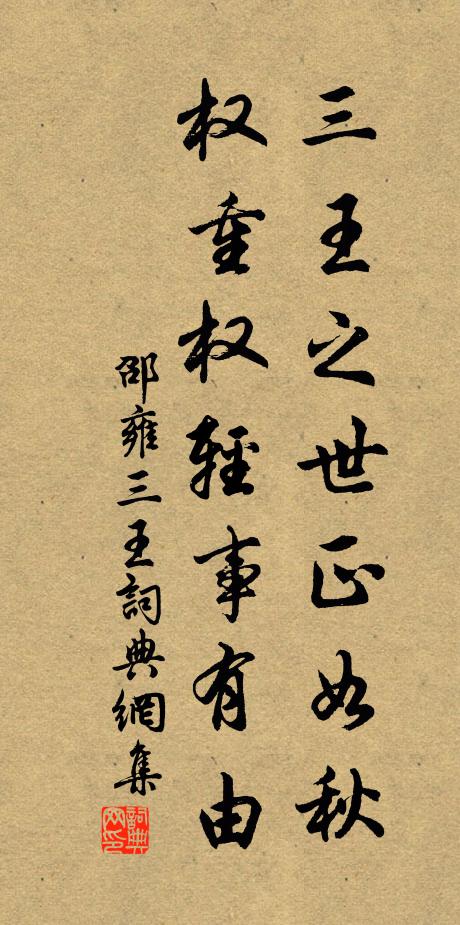 三王之世正如秋
权重权輕事有由
邵雍三王詞典網集
詞典网印